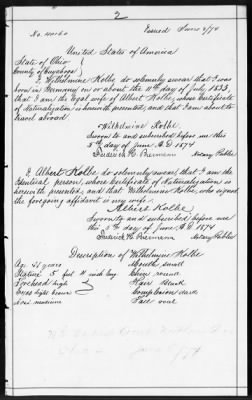 2
No. 40160
Issued June 9/74
United States of America
State of Ohio
County of Cuyahoga
I Wilhelmine Kolbe do solemnly swear that I was
born in Germany on or about the 11th day of July 1833,
that I am the legal wife of Albert Kolbe, whose Certificate
of Naturalization is herewith presented, and that I am about to
travel abroad
Wilhelmine Kolbe
Sworn to and subscribed before me this
5th day of June A.D 1874
Notary Public
I, Albert Kolbe do solemnly swear, that I am the
identical person, whose Certificate of Naturalization is
herewith presented, and that Wilhelmine Kolbe, who signed
the foregoing affidavit is my wife.
Albert Kolbe
Sworn to and subscribed before me
this 5th day of June A.D. 1874
Notary Public
Description of Wilhelmine Kolbe
Age 41 years
Mouth small
Stature 5 feet 4 inch Eng
Chin round
Forehead high
Hair Black
Eyes light brown
Complexion dark
Nose medium
Face oval